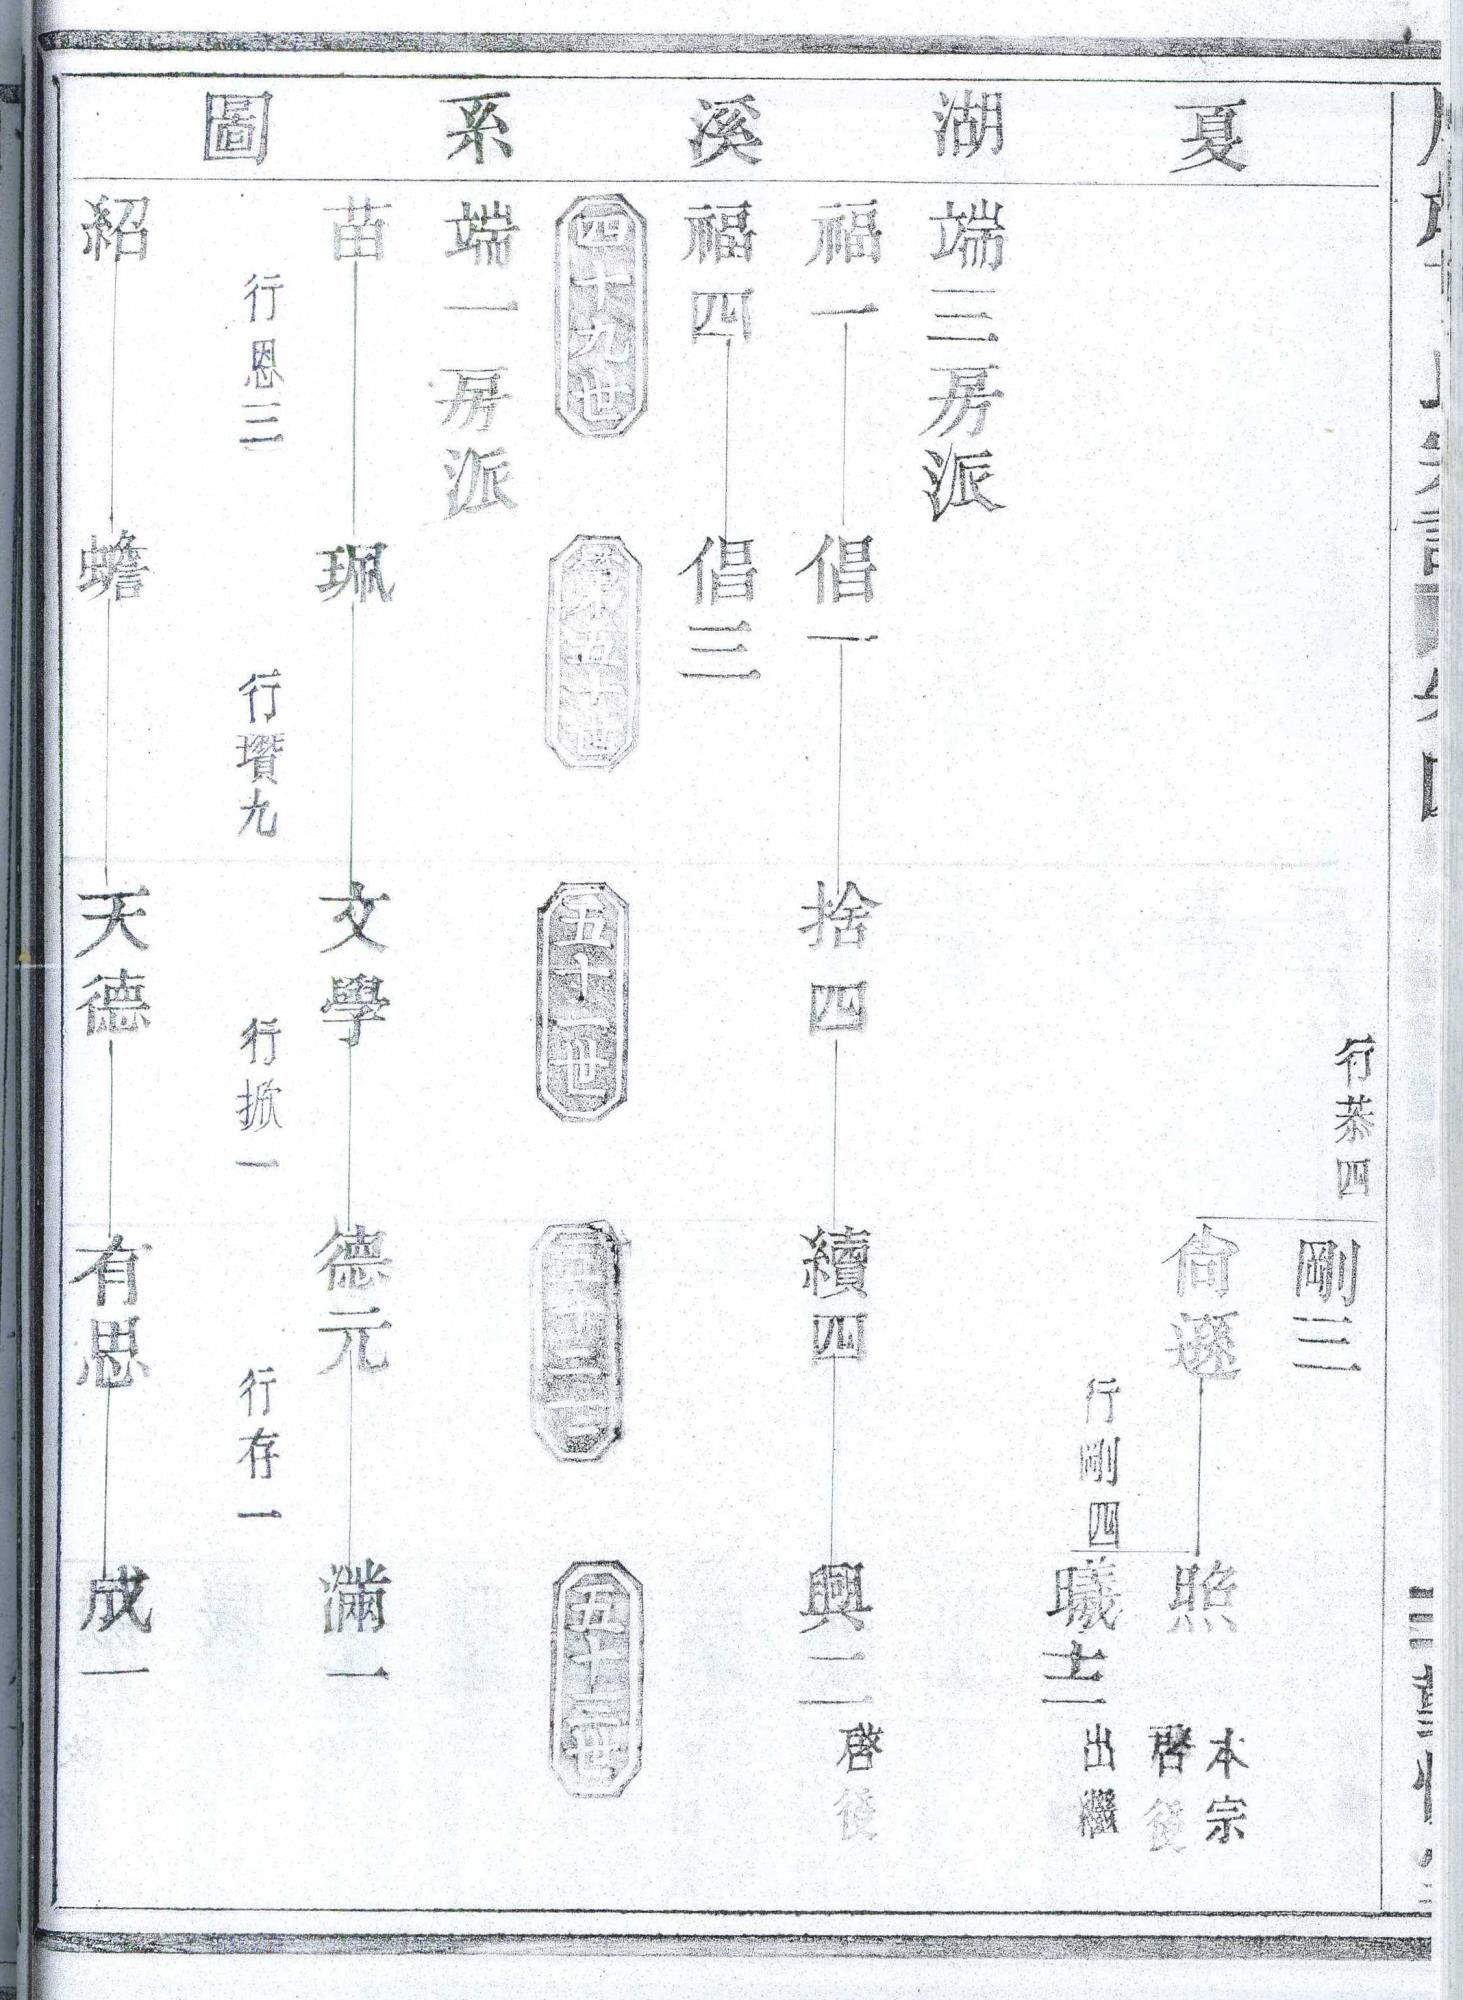 夏湖溪系圖
行恭四
剛三
尙遜
照
本宗
啓後
行剛四
曦士
出繼
端三房派
福一
倡一
捨四
續四
興二
啓後
福四
倡三
四十九世
第五十世
五十一世
五十二世
五十三世
端一房派
苗
珮
文學
德元
滿一
行恩三
行瓚九
行掀一
行存一
紹
蟾
天德
有思
成一